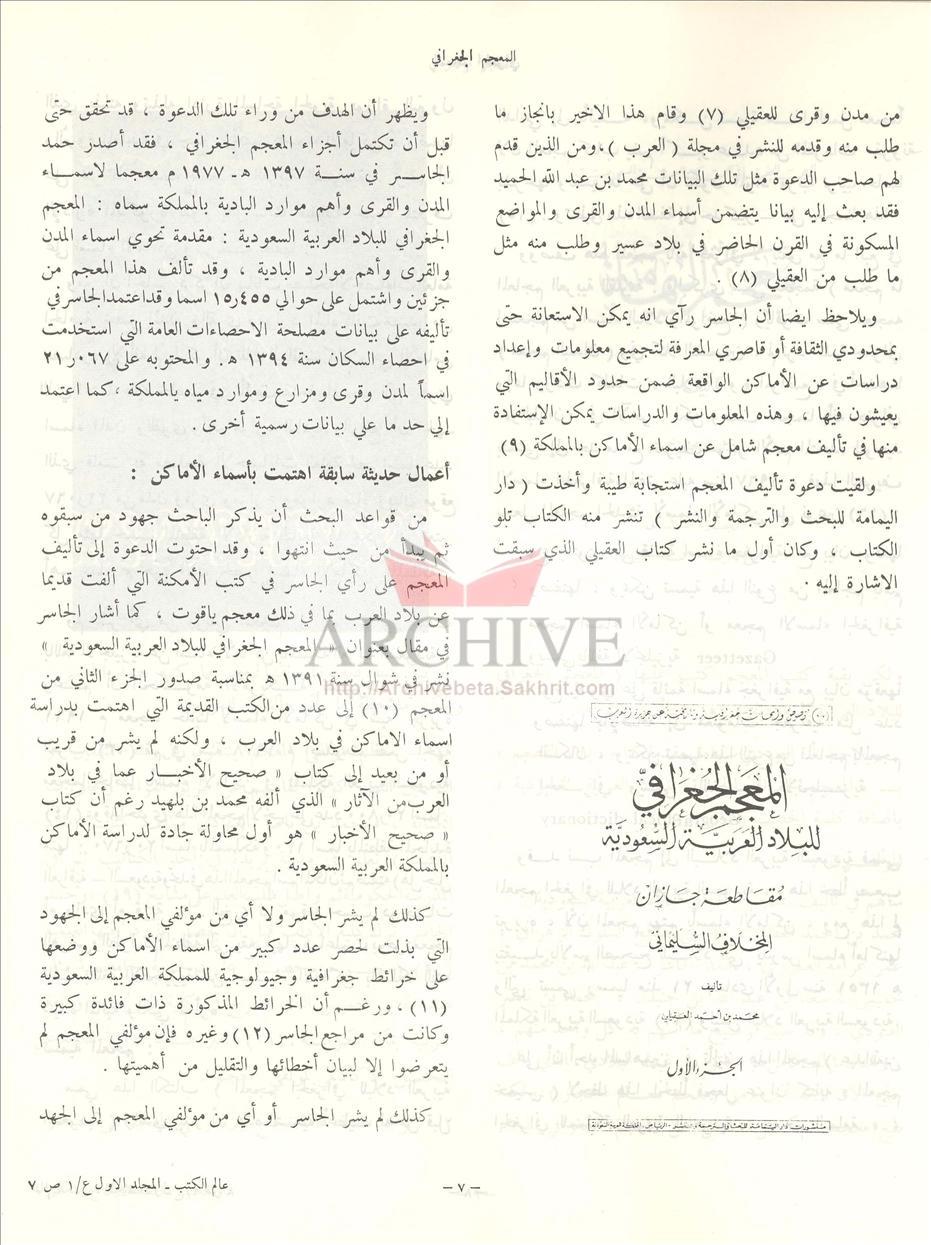 المعجم الجغرافي
من مدن وقرى للعقيلي (٧) وقام هذا الاخير بانجاز ما
طلب منه وقدمه للنشر في مجلة ( العرب )،ومن الذين قدم
لهم صاحب الدعوة مثل تلك البيانات محمد بن عبد الله الحميد
فقد بعث إليه بيانا يتضمن أسماء المدن والقرى والمواضع
المسكونة في القرن الحاضر في بلاد عسير وطلب منه مثل
ما طلب من العقيلي (٨) .
ويلاحظ ايضا أن الجاسر رآي انه يمكن الاستعانة حتى
بمحدودي الثقافة أو قاصري المعرفة لتجميع معلومات وإعداد
دراسات عن الأماكن الواقعة ضمن حدود الأقاليم التي
يعيشون فيها ، وهذه المعلومات والدراسات يمكن الإستفادة
منها في تأليف معجم شامل عن اسماء الأماكن بالمملكة (٩)
ولقيت دعوة تأليف المعجم استجابة طيبة وأخذت ( دار
اليمامة للبحث والترجمة والنشر ) تنشر منه الكتاب تلو
الكتاب ، وكان أول ما نشر كتاب العقيلي الذي سبقت
الاشارة إليه .
المعجم الجغرافي
للبلاد العربية السعودية
مقاطعة جازان
المخلاف السليماني
تأليف
محمد بن أحمد العقيلي
الجزء الأول
منشورات دار اليمامة للبحث والترجمة والنشر - الرياض - المملكة العربية السعودية
ويظهر أن الهدف من وراء تلك الدعوة ، قد تحقق حتى
قبل أن تكتمل أجزاء المعجم الجغرافي ، فقد أصدر حمد
الجاسر في سنة ١٣٩٧ هـ ـ ١٩٧٧ م معجما لاسماء
المدن والقرى وأهم موارد البادية بالمملكة سماه : المعجم
الجغرافي للبلاد العربية السعودية : مقدمة تحوي اسماء المدن
والقرى وأهم موارد البادية ، وقد تألف هذا المعجم من
جزئين واشتمل على حوالي ١٥٫٤٥٥ اسما وقداعتمدالجاسر في
تأليفه على بيانات مصلحة الاحصاءات العامة التي استخدمت
في احصاء السكان سنة ١٣٩٤ هـ. والمحتوبه على ٢١٫٠٦٧
اسماً لمدن وقرى ومزارع وموارد مياه يالمملكة ، كما اعتمد
إلي حد ما علي بيانات رسمية أخرى .
أعمال حديثة سابقة اهتمت بأسماء الأماكن :
من قواعد البحث أن يذكر الباحث جهود من سبقوه
ثم يبدأ من حيث انتهوا ، وقد احتوت الدعوة إلى تأليف
المعجم على رأي الجاسر في كتب الأمكنة التي ألفت قديما
عن بلاد العرب بما في ذلك معجم ياقوت ، كما أشار الجاسر
في مقال بعنوان « المعجم الجغرافي للبلاد العربية السعودية »
نشر في شوال سنة ١٣٩١ هـ بمناسبة صدور الجزء الثاني من
المعجم (١٠) إلى عدد من الكتب القديمة التي اهتمت بدراسة
اسماء الاماكن في بلاد العرب ، ولكنه لم يشر من قريب
أو من بعيد إلى كتاب « صحيح الأخبــار عما في بلاد
العرب من الآثار » الذي ألفه محمد بن بلهيد رغم أن كتاب
« صحيح الأخبار » هو أول محاولة جادة لدراسة الأماكن
بالمملكة العربية السعودية .
كذلك لم يشر الجاسر ولا أي من مؤلفي المعجم إلى الجهود
التي بذلت لحصر عدد كبير من اسماء الأماكن ووضعها
على خرائط جغرافية وجيولوجية للمملكة العربية السعودية
(١١) ، ورغــم أن الخرائط المذكورة ذات فائدة كبيرة
وكانت من مراجع الجاسر (١٢) وغيره فإن مؤلفي المعجم لم
يتعرضوا إلا لبيان أخطائها والتقليل من أهميتها .
كذلك لم يشر الجاسر أو أي من مؤلفي المعجم إلى الجهد
ARCHIVE
http://Archivebeta.Sakhrit.com
ـ ٧ ـ
عالم الكتب ـ المجلد الاول ع/١ ص ٧